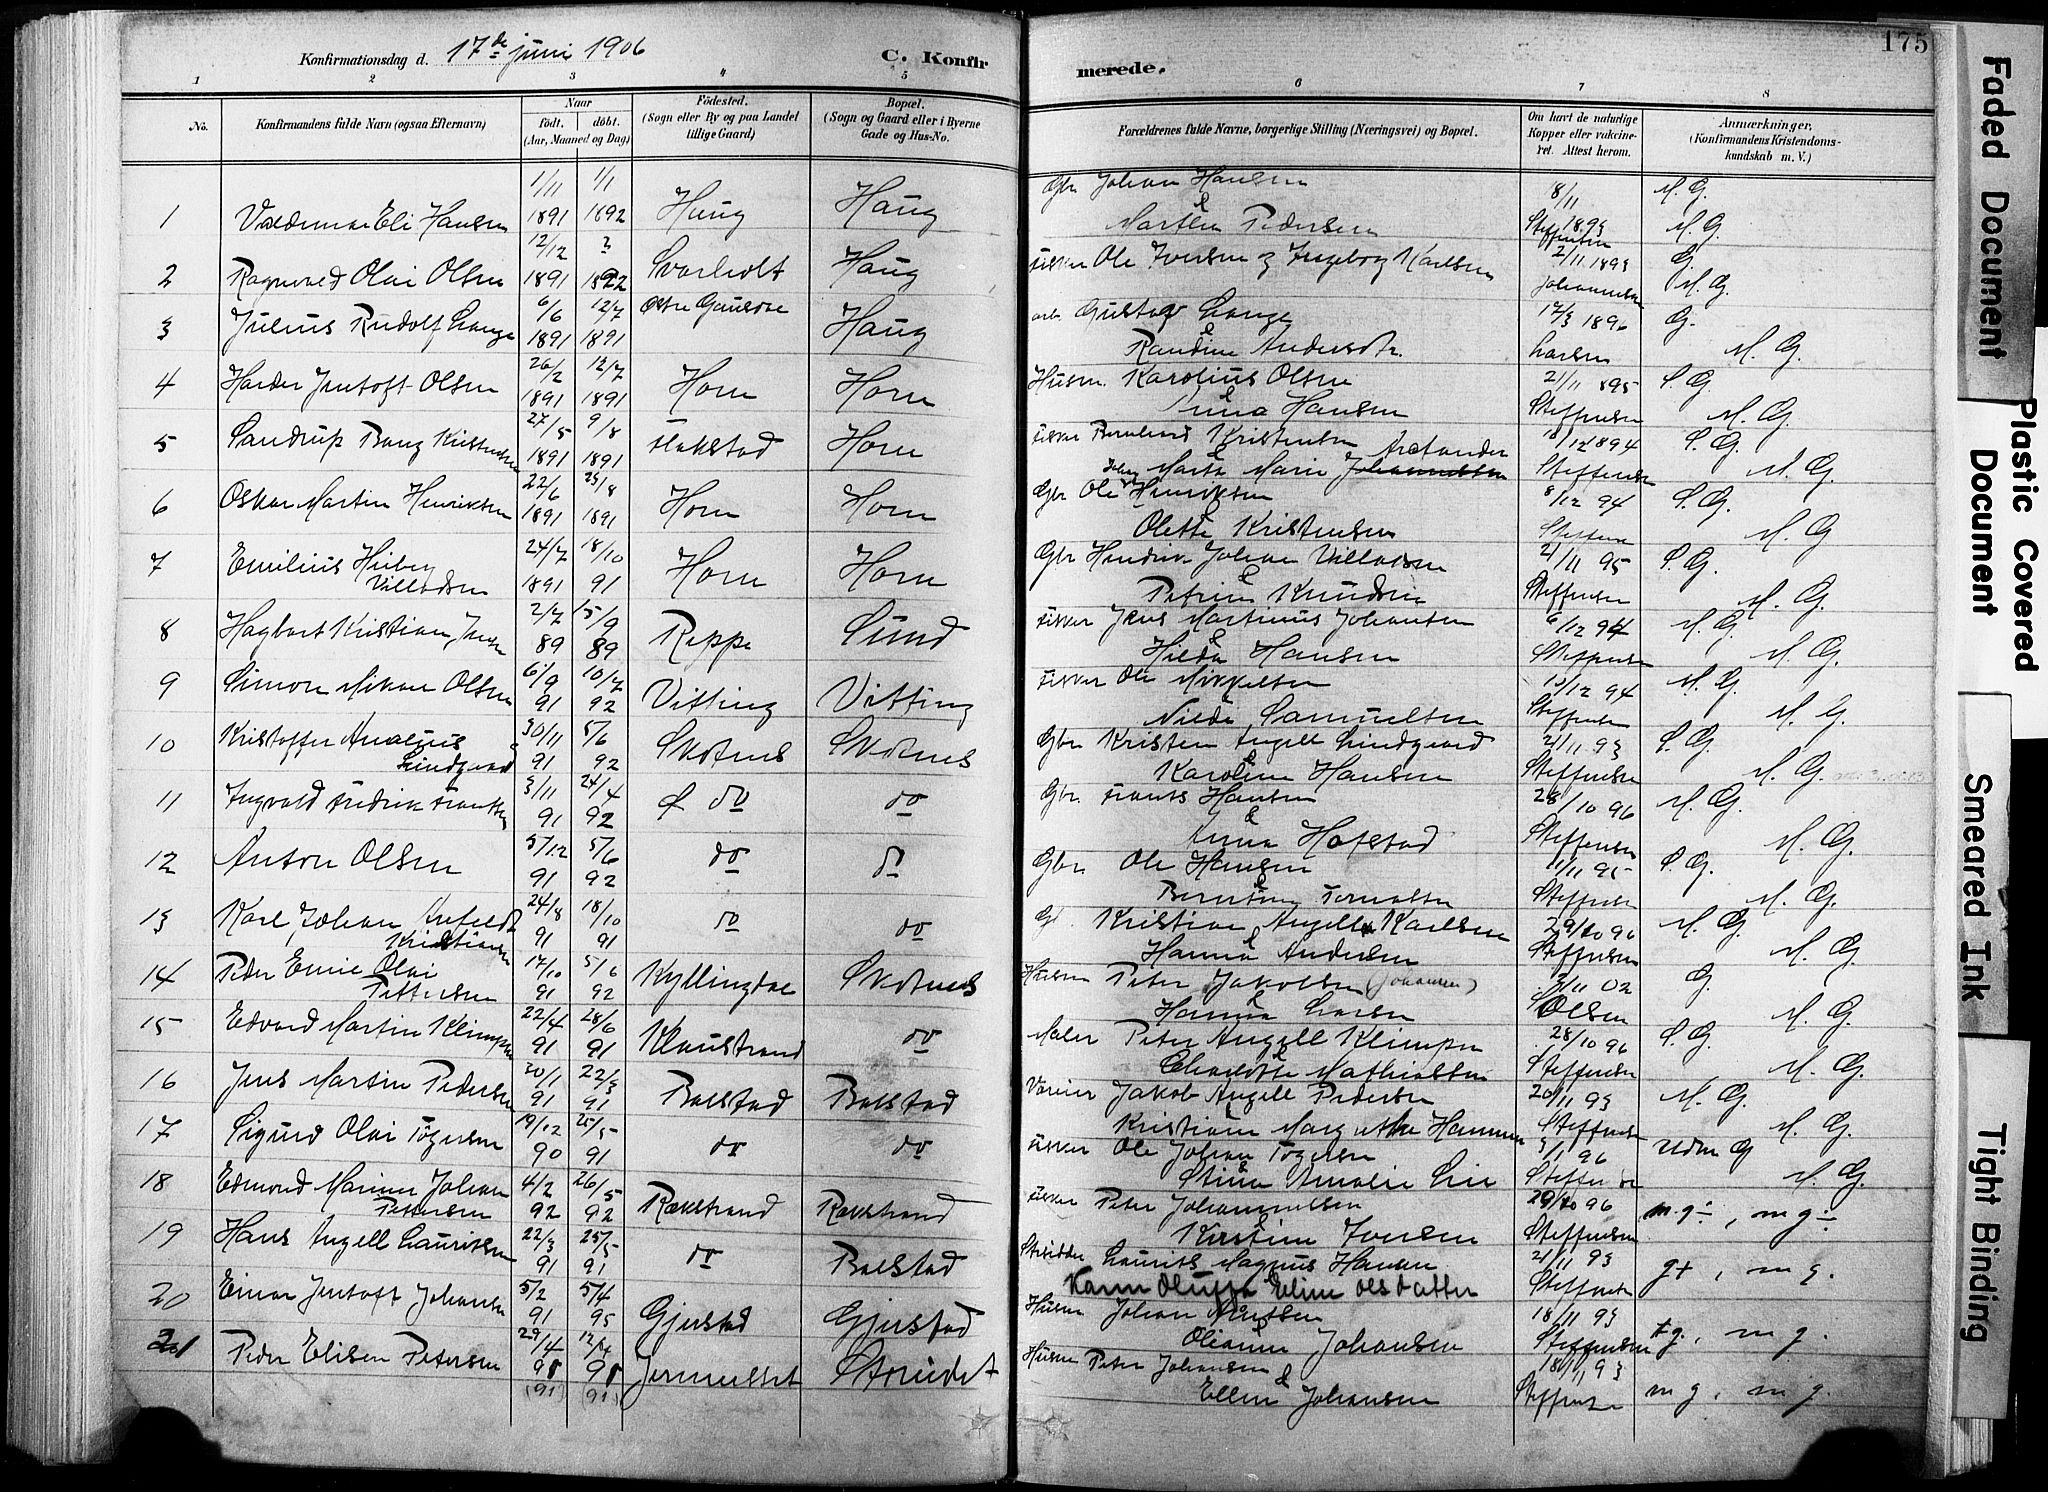 Konfirmationsdag d. 17de juni 1906
C. Konfirmerede.
175
1 2 3 4 5 6 7 8
No.
Konfirmandens fulde Navn (ogsaa Efternavn)
Naar
født. døbt.
(Aar, Maaned og Dag)
Fødested.
(Sogn eller By og paa Landet tillige Gaard)
Bopæl.
(Sogn og Gaard eller i Byerne Gade og Hus-No.
Forældrenes fulde Navne, borgerlige Stilling (Næringsvei) og Bopæl.
Om havt de naturlige Kopper eller vaccineret. Attest herom.
Anmærkninger,
(Konfirmandens Kristendomskundskab m. V.)
1 Valdemar Eli Hansen 1/11 1891 1/1 1892 Haug Haug Gbr Johan Hansen & Marthe Pedersen 8/11 1893 Steffensen M. G. M. G.
2 Ragnvald Olai Olsen 12/12 1891 ? 1892 Svarholt Haug fisker Ole Iversen & Ingeborg Karlsen 2/11 1893 Johannesen G. M. G.
3 Julius Rudolf Lange 6/6 1891 12/7 1891 Østre Gausdal Haug arb. Gustav Lange & Randine Andersdtr. 17/3 1896 Larsen G. M. G.
4 Harder Jentoft Olsen 26/2 1891 12/7 1891 Horn Horn Husm. Karolius Olsen & Hansen 21/11 895 Steffensen S. G. M. G.
5 Sandrup Bang Kristensen 27/5 1891 9/8 1891 Flakstad Horn fisker Bernhard Kristensen & Marta Marie Johannessen Arctander 18/12 1894 Steffensen S. G. M. G.
6 Oskar Martin Henriksen 22/6 1891 23/8 1891 Horn Horn Gbr Ole Johan Henriksen & Olette Kristensen 8/12 94 Steffens S. G. M. G
7 Emilius Hiberg Villadsen 24/7 1891 18/10 91 Horn Horn Gbr Hendrik Johan Villadsen & Petrine Knudsen 21/11 95 Steffensen S. G. M. G.
8 Hagbart Kristian Jensen 2/7 89 15/9 89 Reppe Sund fisker Jens Martinus Johansen & Hilda Hansen 6/12 94 Steffensen M. G. M. G.
9 Simon Mikael Olsen 6/9 91 10/7 92 Vitting Vitting fisker Ole Mikkelsen & Samuelsen 15/12 94 Steffensen M. G. M. G.
10 Kristoffer Analius Lindgaard 30/11 91 5/6 92 Skotnes Skotnes Gbr Kristen Angell Lindgaard & Karoline Hansen 21/11 93 Steffensen S. G. M. G.
11 Ingvald Fredrik Frantsen 3/11 91 24/4 92 do do Gbr. Frants Hansen & Anna Hofstad 28/10 96 Steffensen M. G. M. G.
12 Anton Olsen 5/12 91 5/6 92 do do Gbr Ole Hansen & Berntine Tomasen 1/11 95 Steffensen S. G. M. G.
13 Karl Johan Anfeldt Kristiansen 24/8 91 18/10 91 do do Gb. Kristian Angell Karlsen & Hanna Andersen 29/10 96 Steffensen M. G. M. G.
14 Peder Emil Olai Pettersen 17/10 91 5/6 92 Kyllingdal Skotnes Husm Peter Jakobsen (Johansen) & Hanna Larsen 3/11 02 Olsen G. M. G.
15 Edvard Martin Klimpen 22/4 91 28/6 91 Klaustrand do Maler Peter Angell Klimpen & Charlotte Mathiassen 28/10 96 Steffensen S. G. M. G.
16 Jens Martin Pedersen 20/1 91 22/3 91 Balstad Balstad Jakob Angell Pedersen & Kristiane Margrethe Hammer 20/11 93 Steffensen M. G. M. G.
17 Sigurd Olai Tøgersen 19/12 90 25/5 91 do do fisker Ole Johan Tøgersen & Stina Amalie Lie 3/1 96 Steffensen Udm G M. G.
18 Edmond Marinus Johan Petersen 4/2 92 26/5 92 Ramstrand Ramstrand fisker Peter Johannessen & Kirstine Iversen 29/10 96 Steffensen m. g ÷, m g ÷
19 Hans Angell Lauritsen 22/3 91 25/5 91 do Balstad Laurits Magnus Hansen Karen Oluffa Eline Olsdatter 21/11 93 Steffensen g+, m g.
20 Einar Jentoft Johansen 5/2 91 5/4 95 Gjerstad Gjerstad Husm Johan Knutsen & Oleanna Johansen 18/11 93 Steffensen tg., m g.
21 Peder Elisen Petersen 29/4 91 (91) 12/4 91 (91) Jermulset Strandet Husm Peter Johansen & Ellen Johansen 18/11 93 Steffensen m g, m g.
Faded Document
Plastic Covered Document
Smeared Ink
Tight Binding